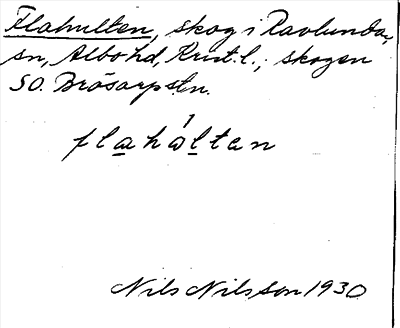 Flahulten, skog i Ravlunda
sn, Albo hd, Krist. l.; skogen
SO. Brösarp stn.
flahàlten
Nils Nilsson 1930